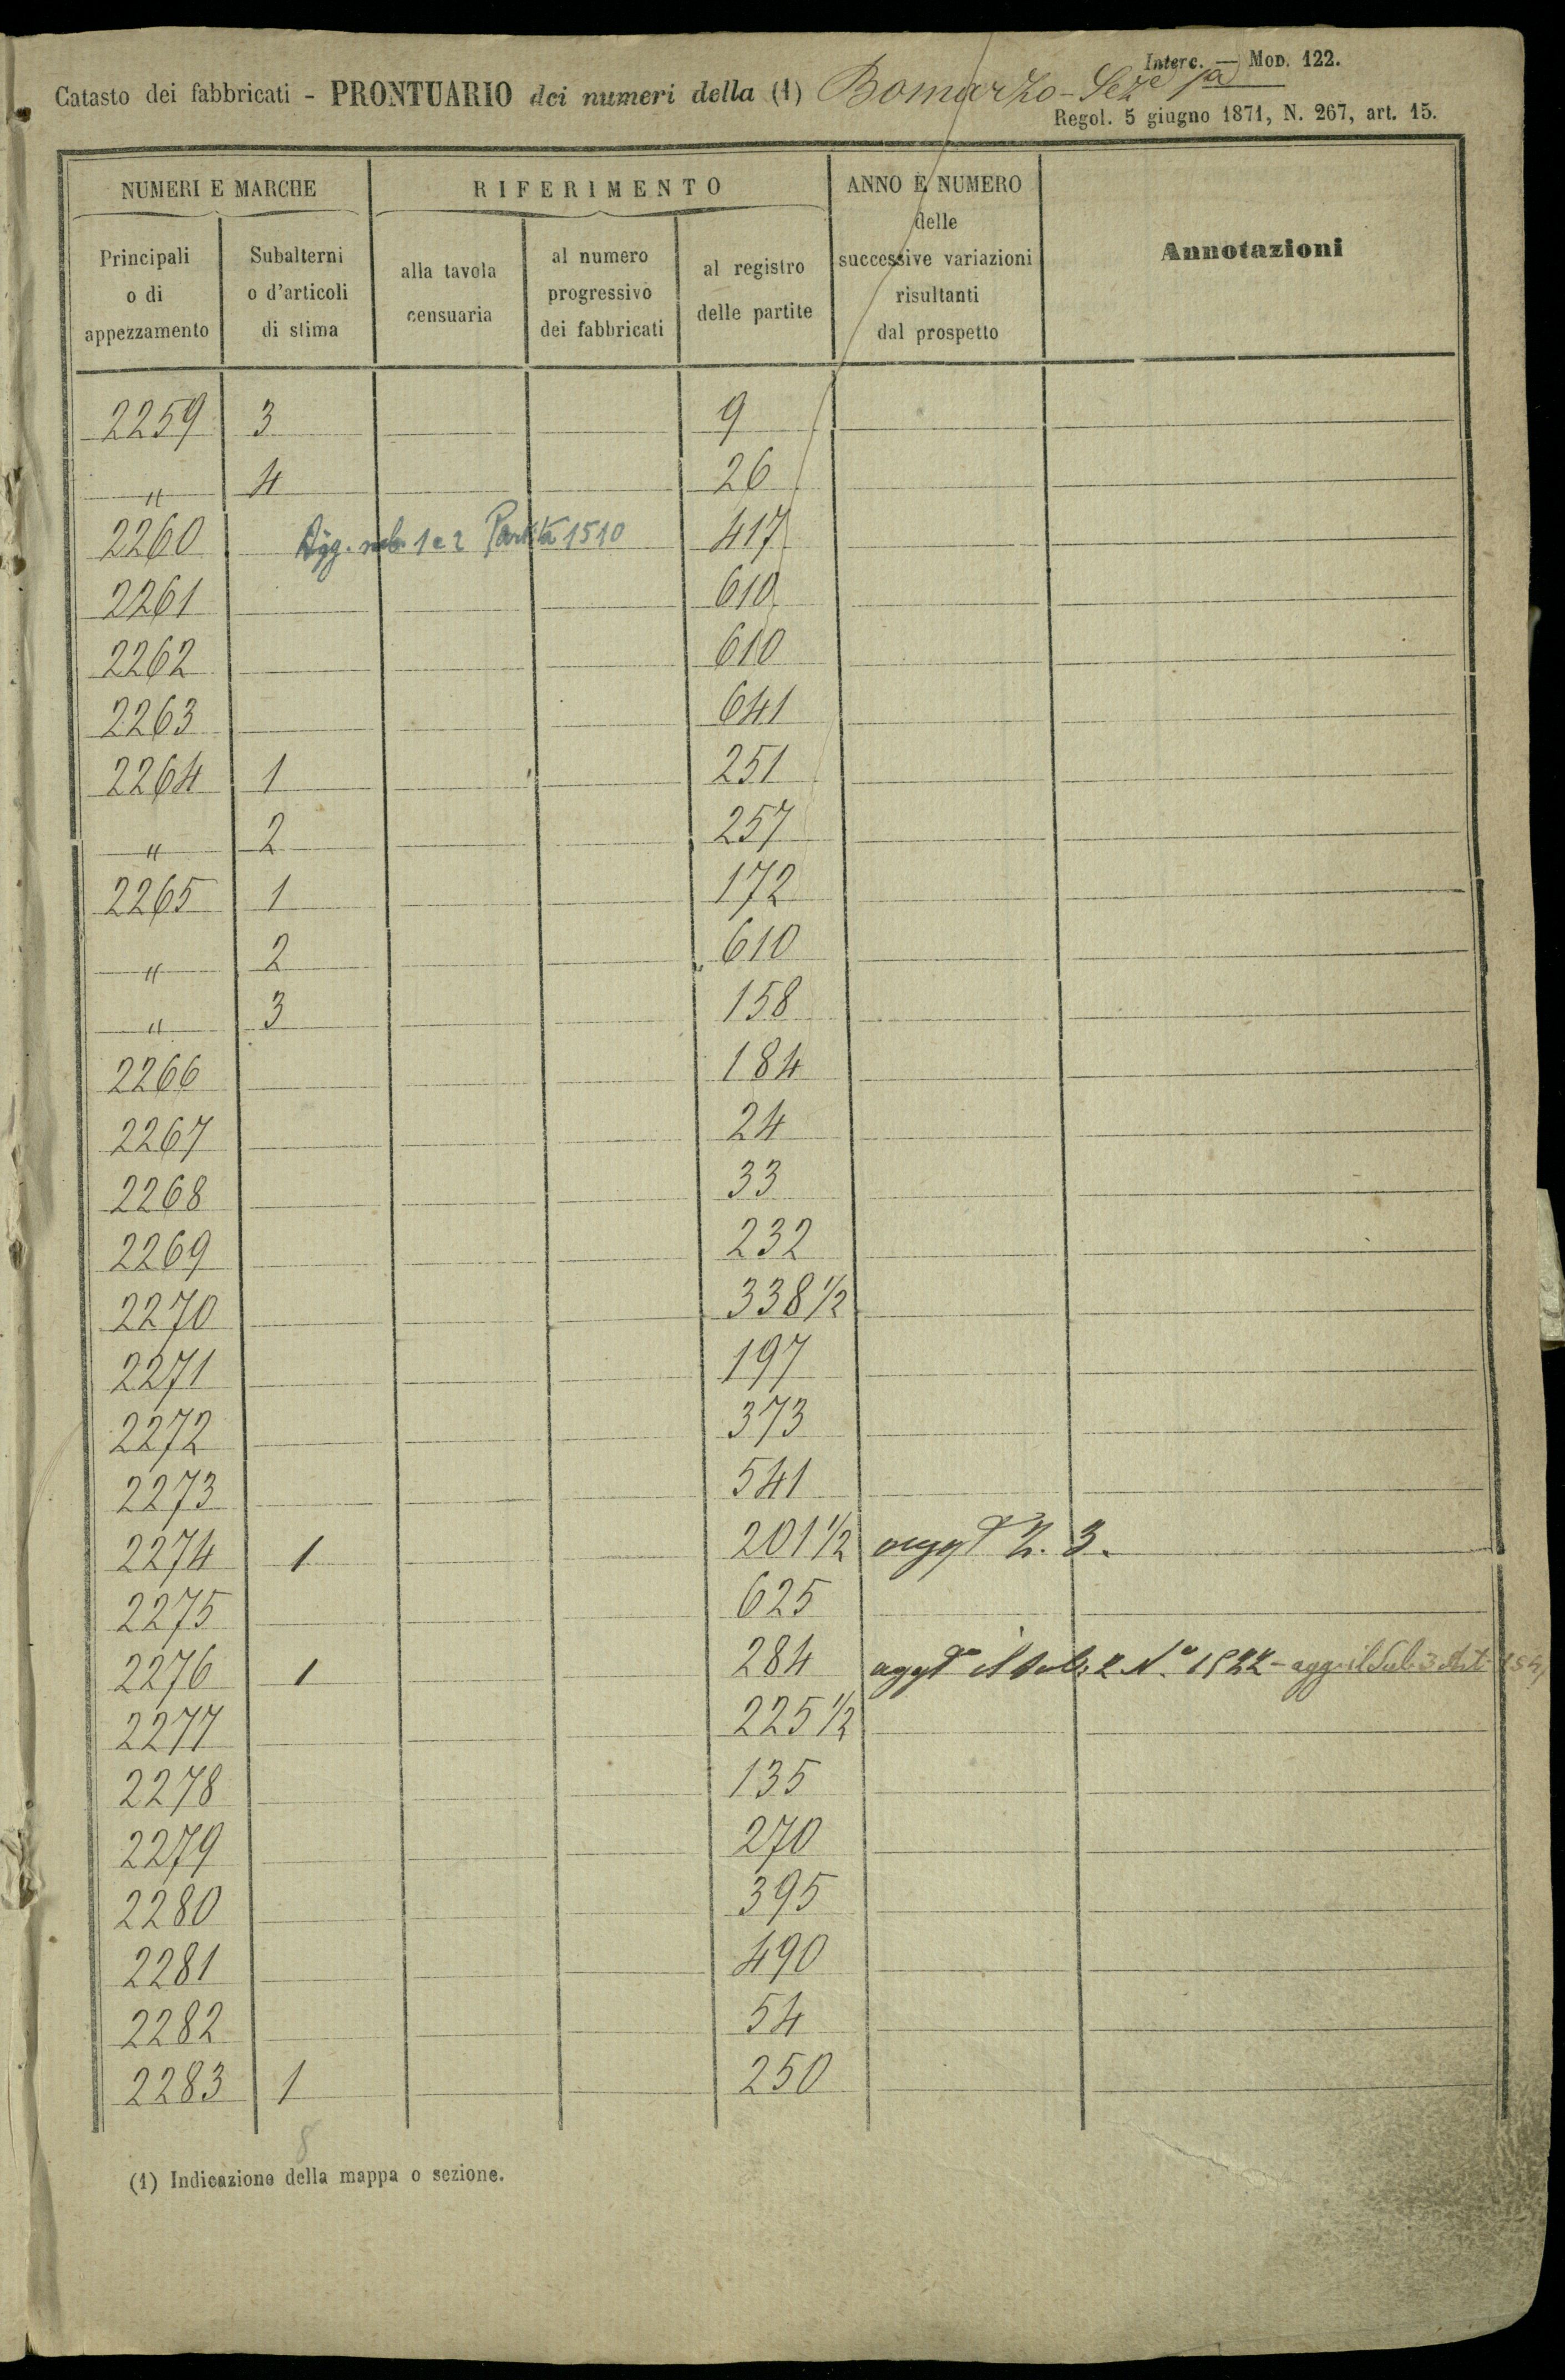 Interc. — Mod. 122.
Catasto dei fabbricati - PRONTUARIO dei numeri della (1) Bomarzo - Seze 1a
Regol. 5 giugno 1871, N. 267, art. 15.
NUMERI E MARCHE RIFERIMENTO ANNO E NUMERO delle successive variazioni risultanti dal prospetto Annotazioni
Principali o di appezzamento Subalterni o d'articoli di stima alla tavola censuaria al numero progressivo dei fabbricati al registro delle partite
2259 3 9
" 4 26
2260 Agg. sub. 1 e 2 Partita 1510 417
2261 610
2262 610
2263 641
2264 1 251
" 2 257
2265 1 172
" 2 610
" 3 158
2266 184
2267 24
2268 33
2269 232
2270 338 1/2
2271 197
2272 373
2273 541
2274 1 201 1/2 2. 3.
2275 625
2276 1 284 aggto il sub. 2 No. 1522 - agg. il Sub. 3 Art.
2277 225 1/2
2278 135
2279 270
2280 395
2281 490
2282 54
2283 1 250
8
(1) Indicazione della mappa o sezione.